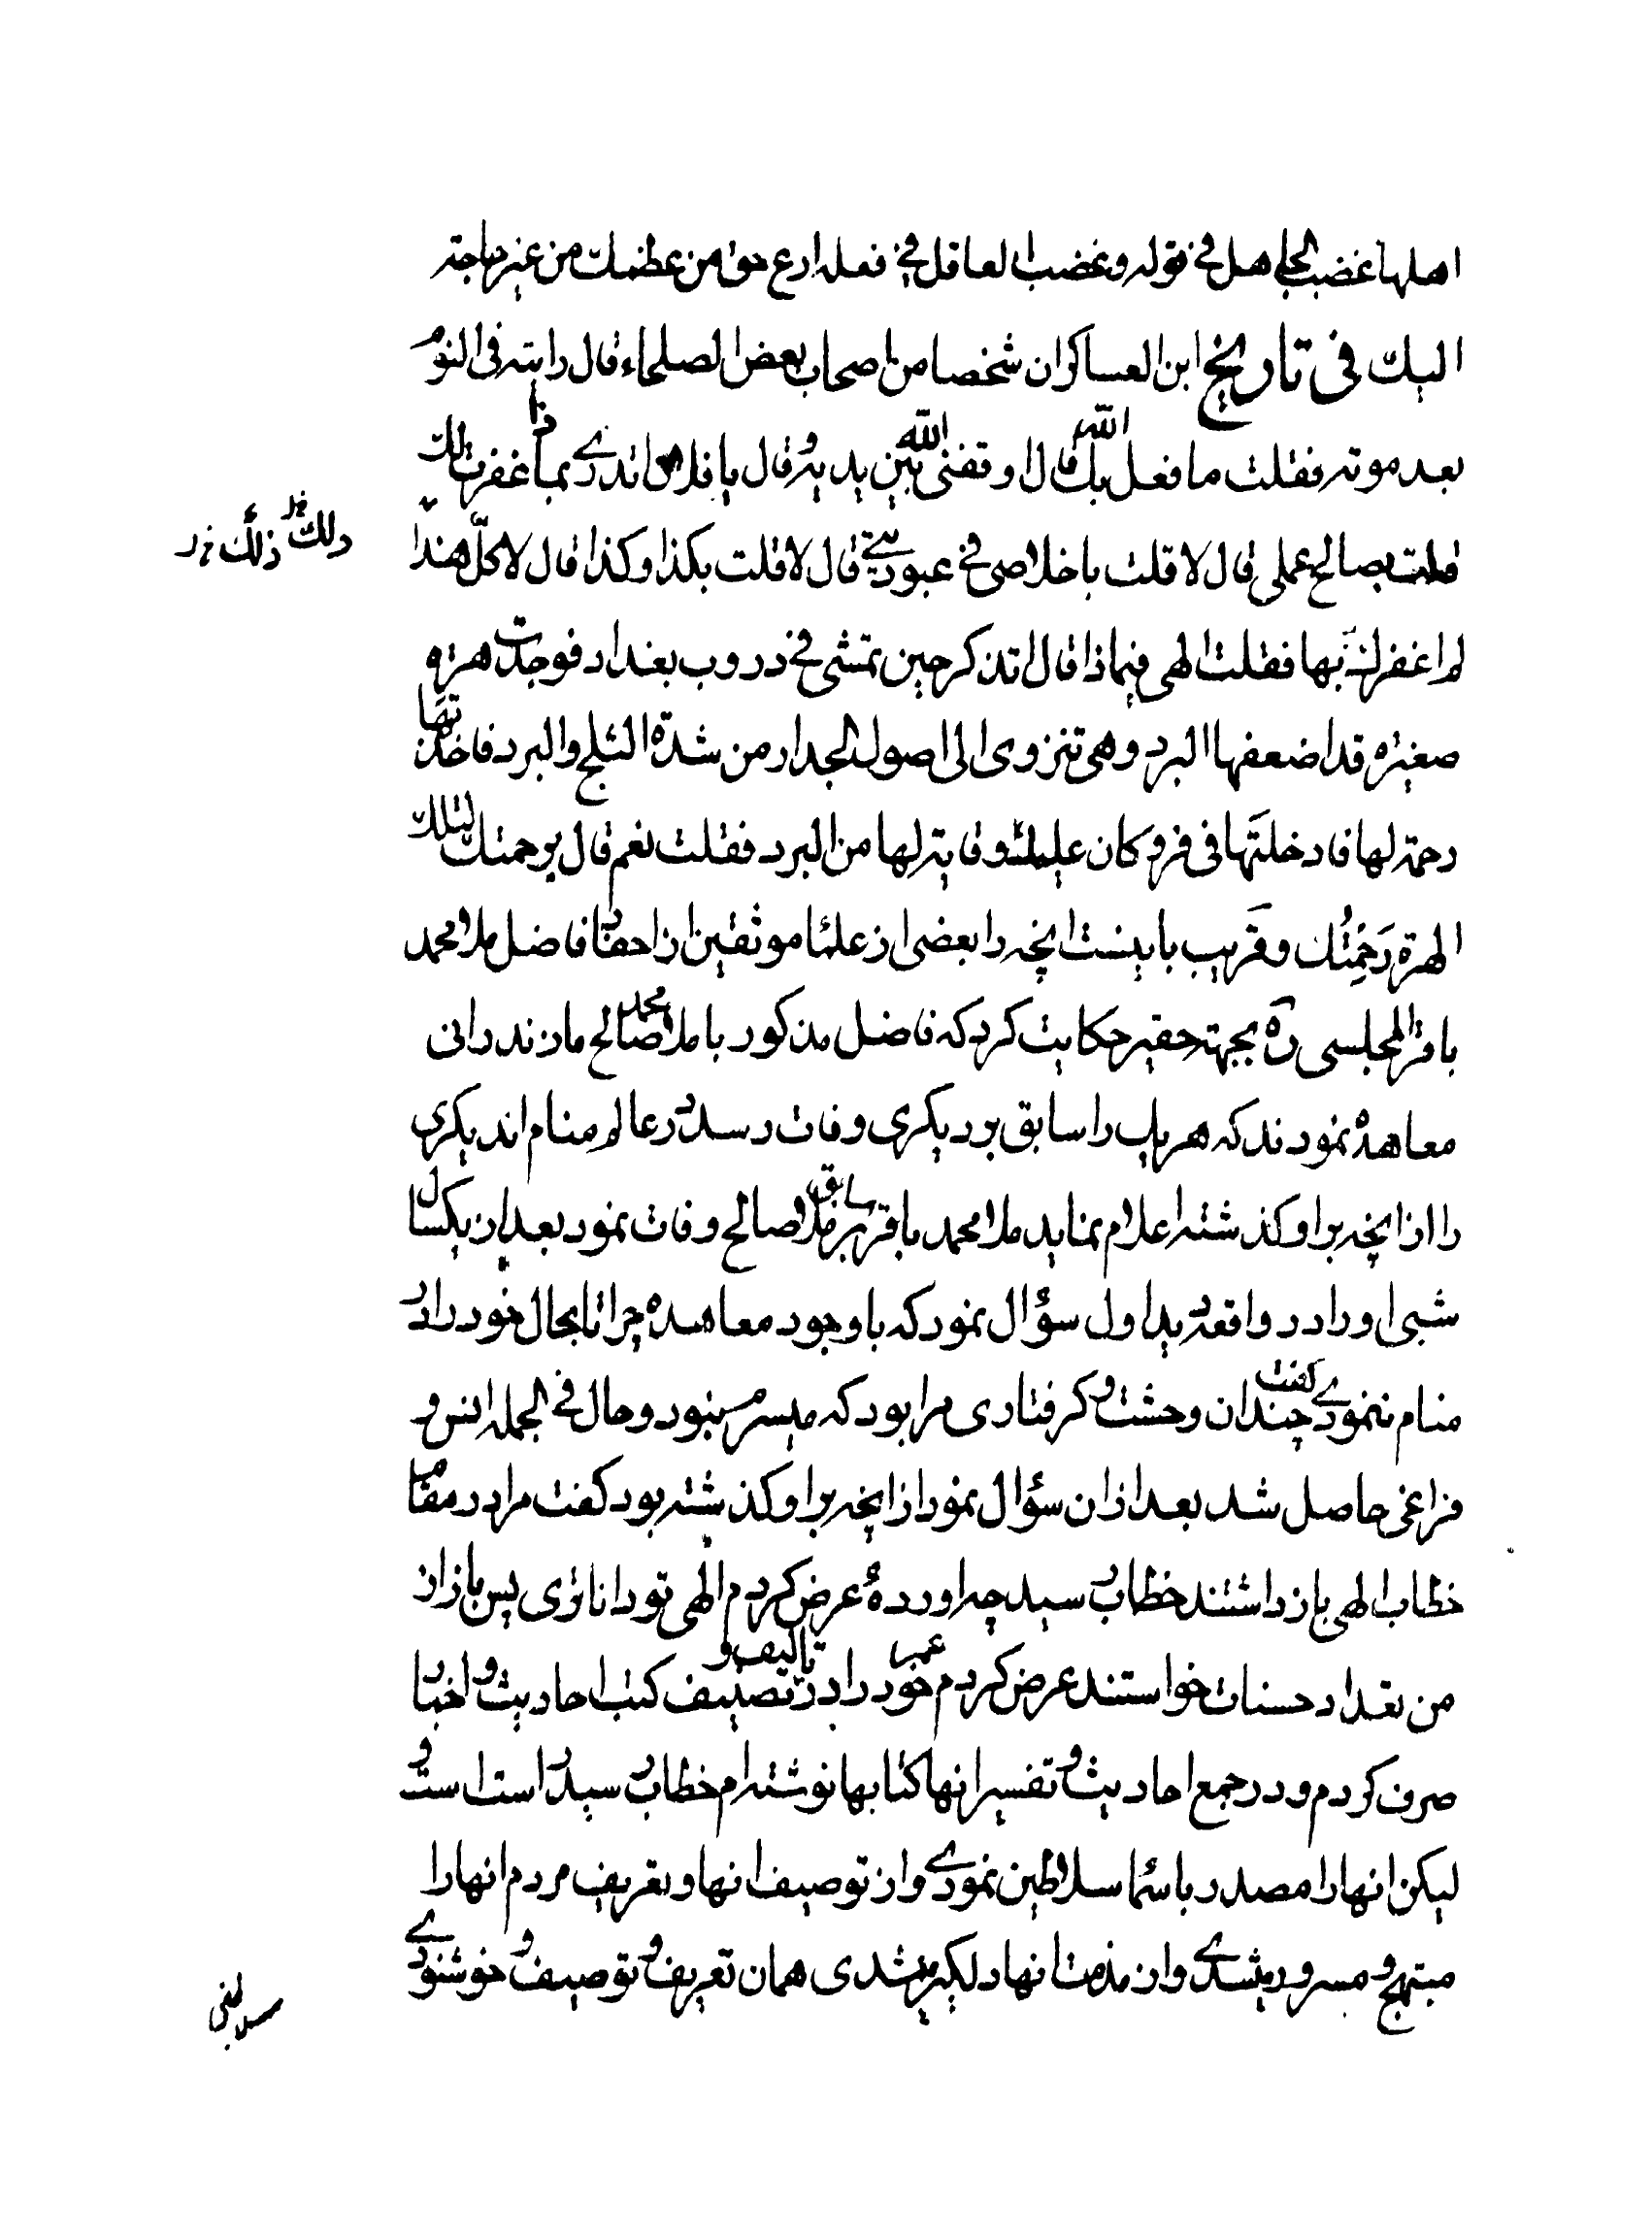 اهلها غضب الجاهل في قوله و غضب العاقل في فعله ارع حق من عظمك من غير حاجة
اليك في تاريخ ابن العساكر ان شخصا من اصحاب بعض الصلحاء قال رايته في النوم
بعد موته فقلت ما فعل الله بك قال اوقفني الله بين يديه و قال يا فلان اتدري بماذا غفرت لك
قلت بصالح عملي قال لا قلت باخلاصي في عبوديتي قال لا قلت بكذا و كذا قال لا كل هذا
ذلك ذلك خ ر
لم اغفر لك بها فقلت الهي فبماذا قال اتذكر حين تمشي في دروب بغداد فوجدت هرة
صغيره قد اضعفها البرد و هي تنزوي الى اصول الجدار من شدة الثلج و البرد فاخذتها
رحمة لها فادخلتها في فرو كان عليك وقاية لها من البرد فقلت نعم قال برحمتك لتلك
الهرة رحمتك و قريب باينست انچه را بعضي از علما موثقين از احفاد فاضل ملا محمد
باقر المجلسي ره بجهة حقير حكايت كرد كه فاضل مذكور با ملا محمد صالح مازندراني
معاهده نمودند كه هر يك را سابق بر ديكري وفات رسد در عالم منام اند يكري
را از انچه بر او كذشته اعلام نمايد ملا محمد باقر سابق بر ملا صالح وفات نمود بعد از يكسال
شبي او را در واقعه ديد اول سؤال نمود كه با وجود معاهده چرا تا بحال خود را در
منام ننمودي كفت چندان وحشت و كرفتاري مرا بود كه ميسرم نبود و حال في الجمله انس و
فراغي حاصل شد بعد از ان سؤال نمود از انچه بر او كذشته بود كفت مرا در مقام
خطاب الهي باز داشتند خطاب رسيد چه اورده عرض كردم الهي تو داناتري پس باز از
من تعداد حسنات خواستند عرض كردم عمر خود را در تاليف و تصنيف كتب احاديث و اخبار
صرف كردم و در جمع احاديث و تفسير انها كتابها نوشته ام خطاب رسيد راست است و
ليكن انها را مصدر باسما سلاطين نمودي و از توصيف انها و تعريف مردم انها را
مبتهج و مسرور ميشدي و از مذمت انها دلكير ميشدي همان تعريف و توصيف و خوشنودي